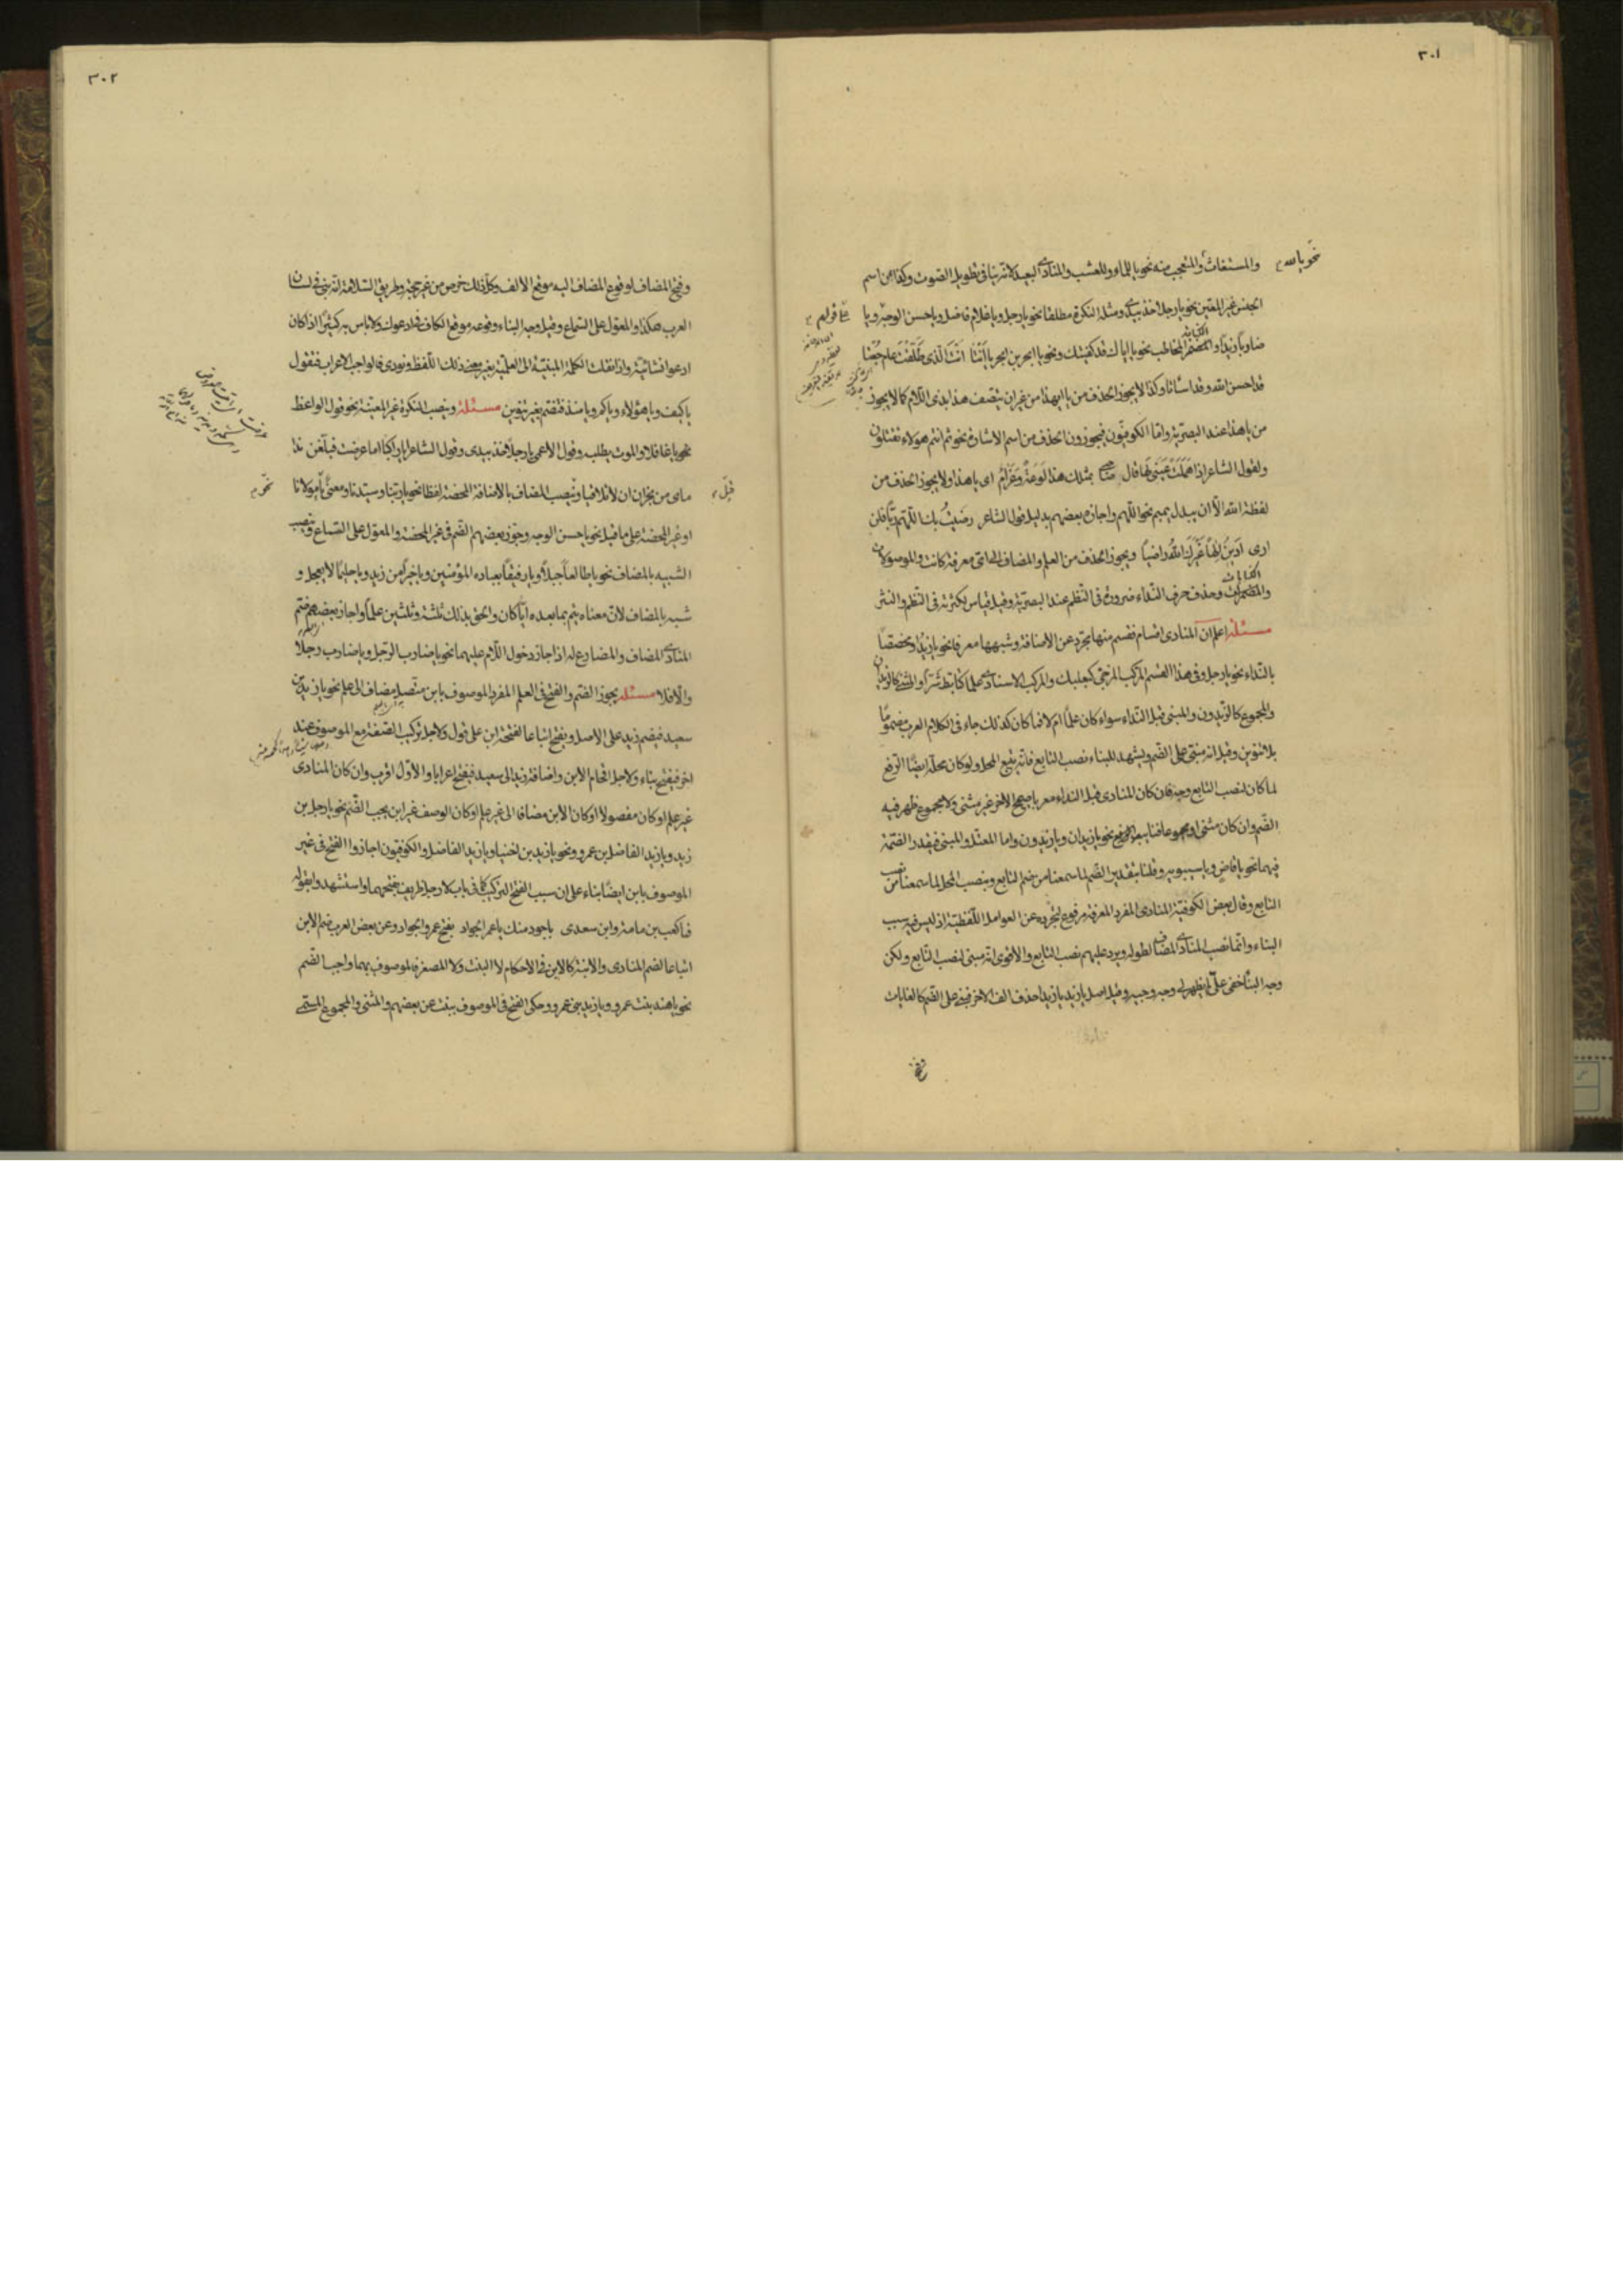 ٣٠١
نحو يا الله
والمستغاث والمتعجب منه نحو يا للماء وللعشب والمنادى البعيد لانه ينافى تطويل الصوت وكذا من اسم
الجنس غير المعين نحو يا رجلا خذ بيدى ومثله النكرة مطلقا نحو يا رجل ويا غلام فاضل ويا حسن الوجه ويا
ضاربا زيدا والمضمر المخاطب نحو يا اياك قد كفيتك ونحو يا ابجر بن ابجر يا انتا انت الذى طلقت عام جعتا
قد احسن الله وقد اساتا وكذا لا يجوز الحذف من يا ايهذا من غير ان يتصف هذا بذى اللام كما لا يجوز
من يا هذا عند البصرية واما الكوفيون فيجوزون الحذف من اسم الاشارة نحو ثم انتم هؤلاء تقتلون
ولقول الشاعر اذا هملت عينى لها قال صاحبى بمثلك هذا لوعة وغرام اى يا هذا ولا يجوز الحذف من
لفظة الله الا ان يبدل بميم نحو اللهم واجازه بعضهم بدليل قول الشاعر رضيت بك اللهم ربا فلن
ارى ادين الها غيرك الله راضيا ويجوز الحذف من العلم والمضاف الى اى معرفة كانت والموصولات
والمضمرات وحذف حرف النداء ضرورة فى النظم عند البصرية وقيل قياس لكثرته فى النظم والنثر
مسئلة اعلم ان المنادى اقسام فقسم منها يجرد عن الاضافة وشبهها معرفا نحو يا زيد او مخصصا
بالنداء نحو يا رجل وفى هذا القسم المركب المزجى كبعلبك والمركب الاسنادى علما كتابط شرا والمثنى كالزيدان
والمجموع كالزيدون والمبنى قبل النداء سواء كان علما ام لا فما كان كذلك جاء فى الكلام العرب مضموما
بلا تنوين وقيل انه مبنى على الضم ويشهد للبناء نصب التابع فانه يتبع المحل ولو كان محله ايضا الرفع
لما كان لنصب التابع وجه فان كان المنادى قبل النداء معربا صحيح الاخر غير مثنى ولا مجموع ظهر فيه
الضم وان كان مثنى او مجموعا فنايب الضم نحو يا زيدان ويا زيدون واما المعتل والمبنى فيقدر الضمة
فيهما نحو يا قاض ويا سيبويه وقلنا بتقدير الضم لما سمعنا من ضم التابع وبنصب المحل لما سمعنا من نصب
التابع وقال بعض الكوفية المنادى المفرد المعرفة مرفوع لتجرده عن العوامل اللفظية اذ ليس فيه سبب
البناء وانما نصب المنادى المضاف لطوله ويرد عليهم نصب التابع والاقوى انه مبنى لنصب التابع ولكن
وجه البناء خفى على لم يظهر لى وجه وجيه وقيل اصل يا زيد يا زيدا حذف الف الاخر فبنى على الضم كالغايات
وفتح
٣٠٢
وفتح المضاف لوقوع المضاف اليه موقع الالف وكل ذلك خرص من غير حجة وطريق السلامة انه بنى فى لسان
العرب هكذا والمعول على السماع وقيل وجه البناء وقوعه موقع الكاف فى ادعوك ولا باس به كثيرا اذا كان
ادعو انشائية واذا نقلت الكلمة المبنية الى العلمية بغير معنى ذلك اللفظ ونودى قالوا جب الاعراب فتقول
يا كيف ويا هؤلاء ويا كم ويا منذ فتضم بغير تنوين مسئلة وينصب النكرة غير المعينة نحو قول الواعظ
نحو يا غافلا والموت يطلبه وقول الاعمى يا رجلا خذ بيدى وقول الشاعر ايا راكبا اما عرضت فبلغن ندا
ماى من نجران ان لا تلاقيا وينصب المضاف بالاضافة المحضة لفظا نحو يا ربنا وسيدنا ومعنى يا مولانا
او غير المحضة على ما قيل نحو يا حسن الوجه وجوز بعضهم الضم فى غير المحضة والمعول على السماع وينصب
الشبيه بالمضاف نحو يا طالعا جبلا ويا رفيقا بعباده المؤمنين ويا خيرا من زيد ويا حليما لا يعجل و
شبه بالمضاف لان معناه يتم بما بعده ايا كان والحق بذلك ثلثة وثلثين علما واجاز بعضهم ضم
المنادى المضاف والمضارع له اذا جاز دخول اللام عليهما نحو يا ضارب الرجل ويا ضارب رجلا
والا فلا مسئلة يجوز الضم والفتح فى العلم المفرد الموصوف بابن متصل مضاف الى علم نحو يا زيد بن
سعيد فيضم زيد على الاصل ويفتح اتباعا لفتحة ابن على قول ولاجل تركيب الصفة مع الموصوف عند
اخر فيفتح بناء ولاجل اقحام الابن واضافة زيد الى سعيد فيفتح اعرابا والاول اقرب وان كان المنادى
غير علم او كان مفصولا او كان الابن مضافا الى غير علم او كان الوصف غير ابن يجب الضم نحو يا رجل بن
زيد ويا زيد الفاضل بن عمرو ونحو يا زيد بن اخينا ويا زيد الفاضل والكوفيون اجازوا الفتح فى غير
الموصوف بابن ايضا بناء على ان سبب الفتح التركيب كما فى باب لا رجل ظريف بفتحهما واستشهدوا بقوله
فما كعب بن مامة وابن سعدى باجود منك يا عمر الجواد بفتح عمر والجواد وعن بعض العرب ضم الابن
اتباعا لضم المنادى والابنة كالابن فى الاحكام لا البنت ولا المصغرة فالموصوف بهما واجب الضم
نحو يا هند بنت عمرو ويا زيد بنى عمرو وحكى الفتح فى الموصوف ببنت عن بعضهم والمثنى والمجموع المسمى